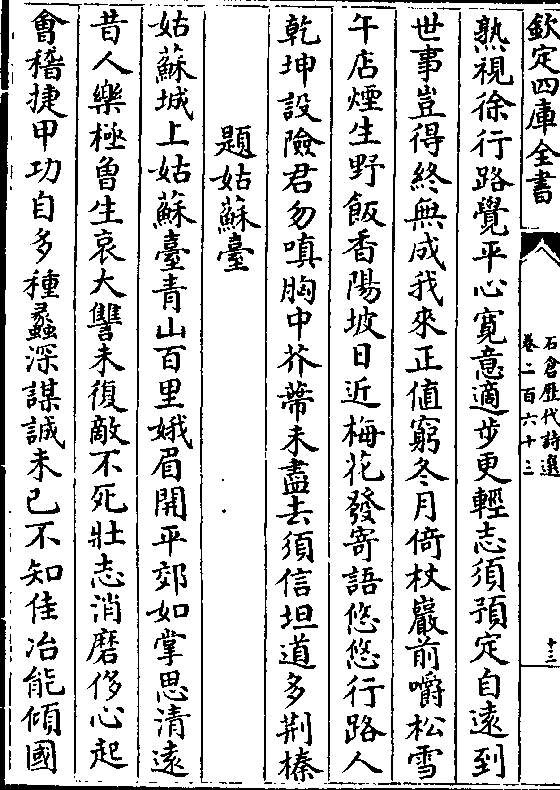 欽定四庫全書
石倉歷代詩選
卷二百六十三
十三
熟視徐行路覺平心寛意適步更輕志須預定自遠到
世事豈得終無成我來正值窮冬月倚杖巖前嚼松雪
午店煙生野飯香陽坡日近梅花發寄語悠悠行路人
乾坤設險君勿嗔胸中芥蔕未盡去須信坦道多荆榛
題姑蘇臺
姑蘇城上姑蘇臺青山百里娥眉開平郊如掌思清遠
昔人樂極魯生哀大讐未復敵不死壯志消磨侈心起
會稽捷甲功自多種蠡深謀誠未已不知佳冶能傾國